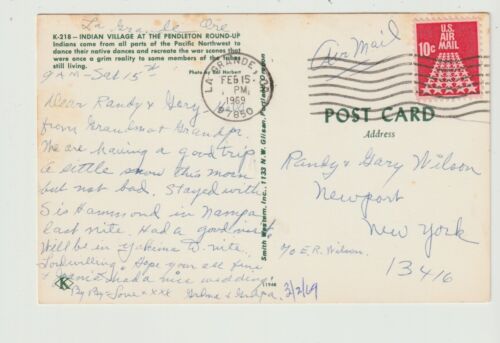 La Grande, Ore
K-218 — INDIAN VILLAGE AT THE PENDLETON ROUND-UP
Indians come from all parts of the Pacific Northwest to
dance their native dances and recreate the war scenes that
were once a grim reality to some members of the tribes
still living.
Photo by Hal Herbert
9 AM - Sat 15th
Dear Randy & Gary,
from Grandma & Grandpa.
We are having a good trip
a little snow this morn
but not bad. Stayed with
Sis Hammond in Nampa
last nite. Had a good visit!
Will be in Yakima to-nite.
Lord willing. Hope your all fine
& had a nice wedding.
By By - Love - xxx Grandpa
3/2/69
K
11948
Smith Western, Inc., 1133 N.W. Glisan, Portland, Oregon
LA GRANDE, ORE
FEB 15
PM
1969
97850
Air Mail
U.S.
AIR MAIL
10c
POST CARD
Address
Randy & Gary Wilson
Newport
New York
℅ E.R. Wilson.
13416